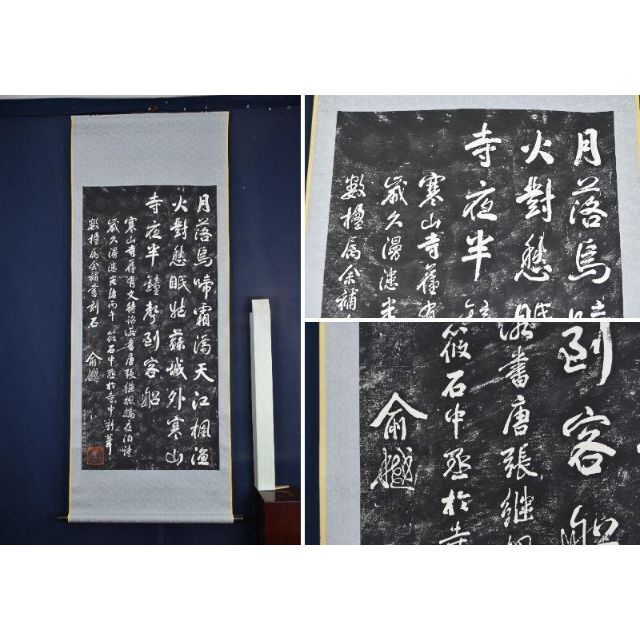 月落烏啼霜滿天江楓漁
火對愁眠姑蘇城外寒山
寺夜半鐘聲到客船
寒山寺舊有文待詔所書唐張繼楓橋夜泊詩
歲久漫漶光緒丙午筱石中丞於寺中新葺
數楹属余補書刻石
俞樾
月落烏啼
火對愁眠
寺夜半
寒山寺舊有
歲久漫漶光
數楹属余補
到客船
所書唐張継楓
筱石中丞於寺
俞樾